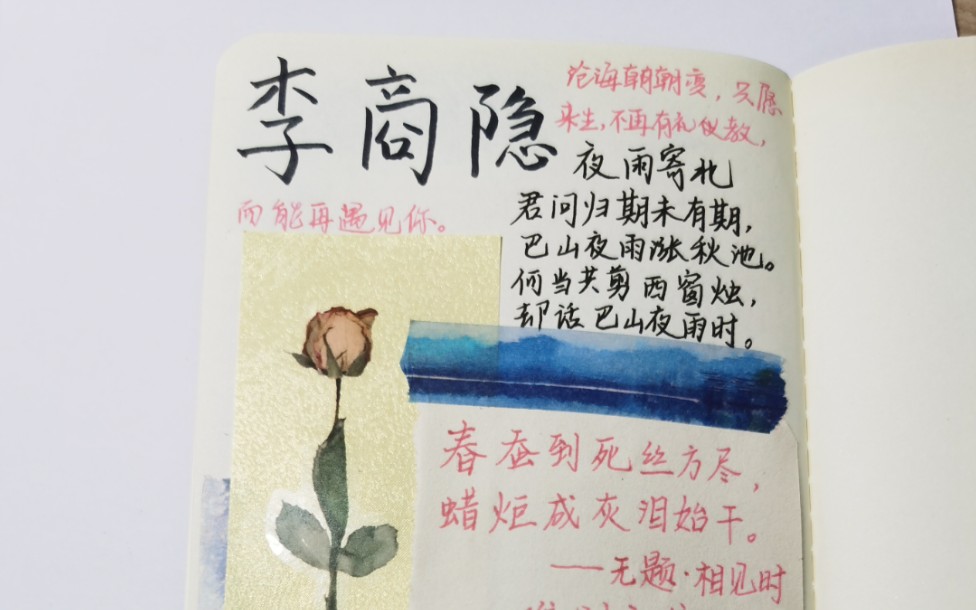 李商隐
沧海朝朝变，只愿
来生，不再有礼仪教，
而能再遇见你。
夜雨寄北
君问归期未有期，
巴山夜雨涨秋池。
何当共剪西窗烛，
却话巴山夜雨时。
春蚕到死丝方尽，
蜡炬成灰泪始干。
——无题·相见时